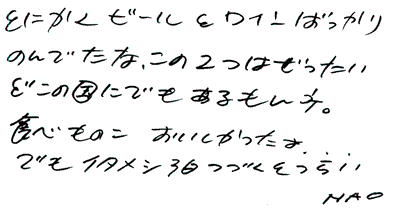 とにかくビールとワインばっかり
のんでたな、この2つはぜったい
どこの国にでもあるもんネ。
食べもの おいしかったよ
でもイタメシ3日つづくとつらい
NAO